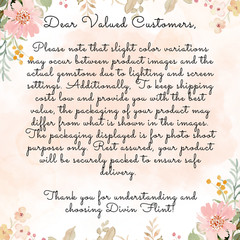 Dear Valued Customers,
Please note that slight color variations
may occur between product images and the
actual gemstone due to lighting and screen
settings. Additionally, To keep shipping
costs low and provide you with the best
value, the packaging of your product may
differ from what is shown in the images.
The packaging displayed is for photo shoot
purposes only. Rest assured, your product
will be securely packed to ensure safe
delivery.
Thank you for understanding and
choosing Divin Flint!